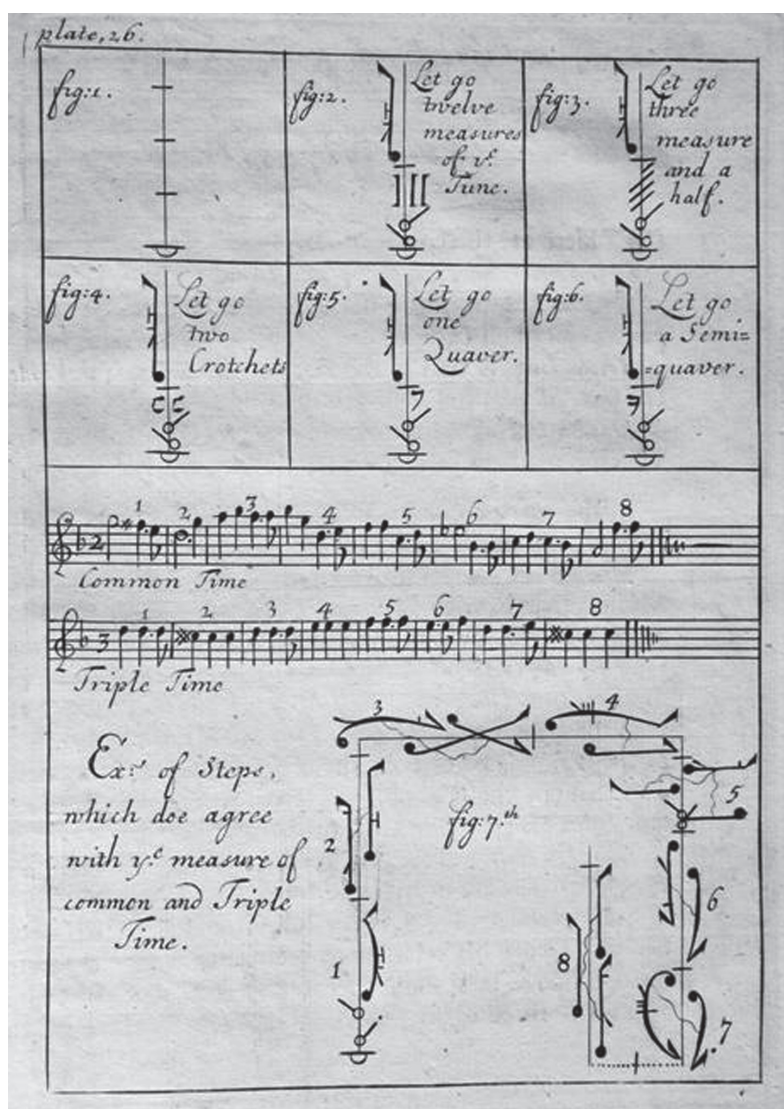 plate, 26.
fig: 1.
fig: 2.
Let go
twelve
measures
of yᵉ
Tune.
fig: 3.
Let go
three
measure
and a
half.
fig: 4.
Let go
two
Crotchets
fig: 5.
Let go
one
Quaver.
fig: 6.
Let go
a Semi=
=quaver.
2 1 2 3 4 5 6 7 8
Common Time
3 1 2 3 4 5 6 7 8
Triple Time
Exᵖ of Steps,
which doe agree
with yᵉ measure of
common and Triple
Time.
fig: 7.ᵗʰ
1
2
3
4
5
6
7
8